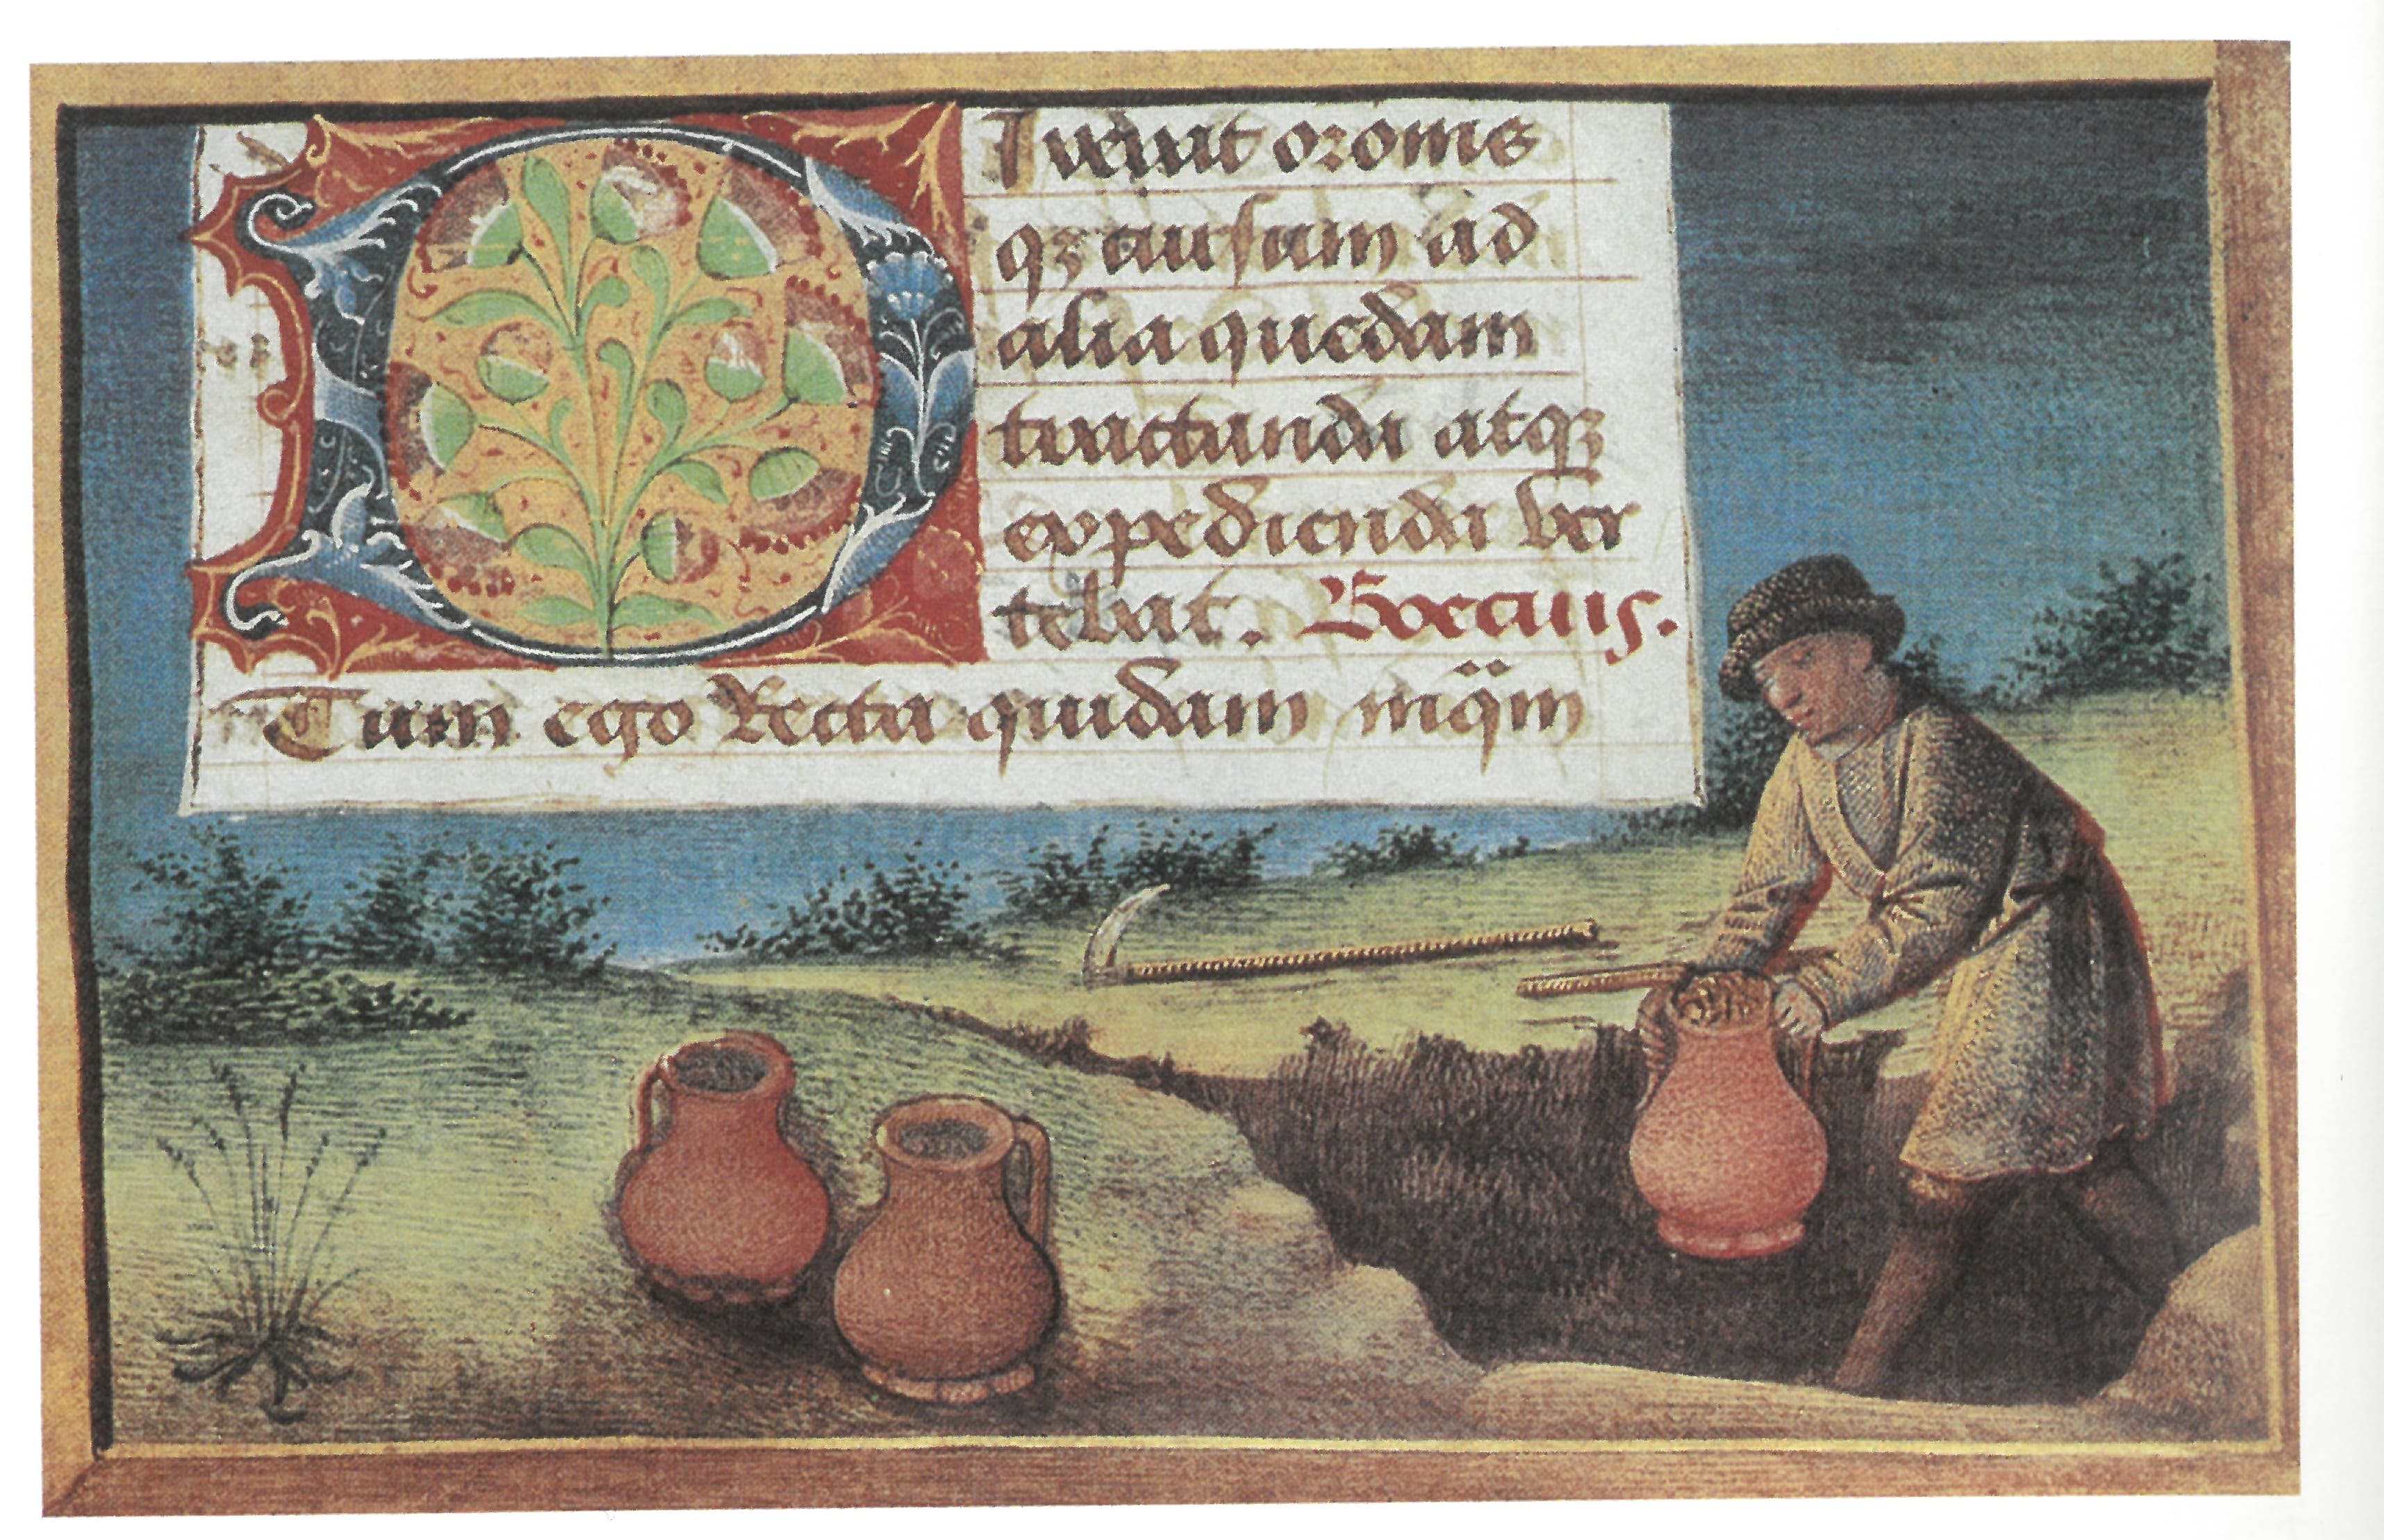 DIxerat oronis
qꝫ cursum ad
alia quedam
tractanda atqꝫ
expedienda ver
tebat. Boecius.
Tum ego Recta quidam inq̈m